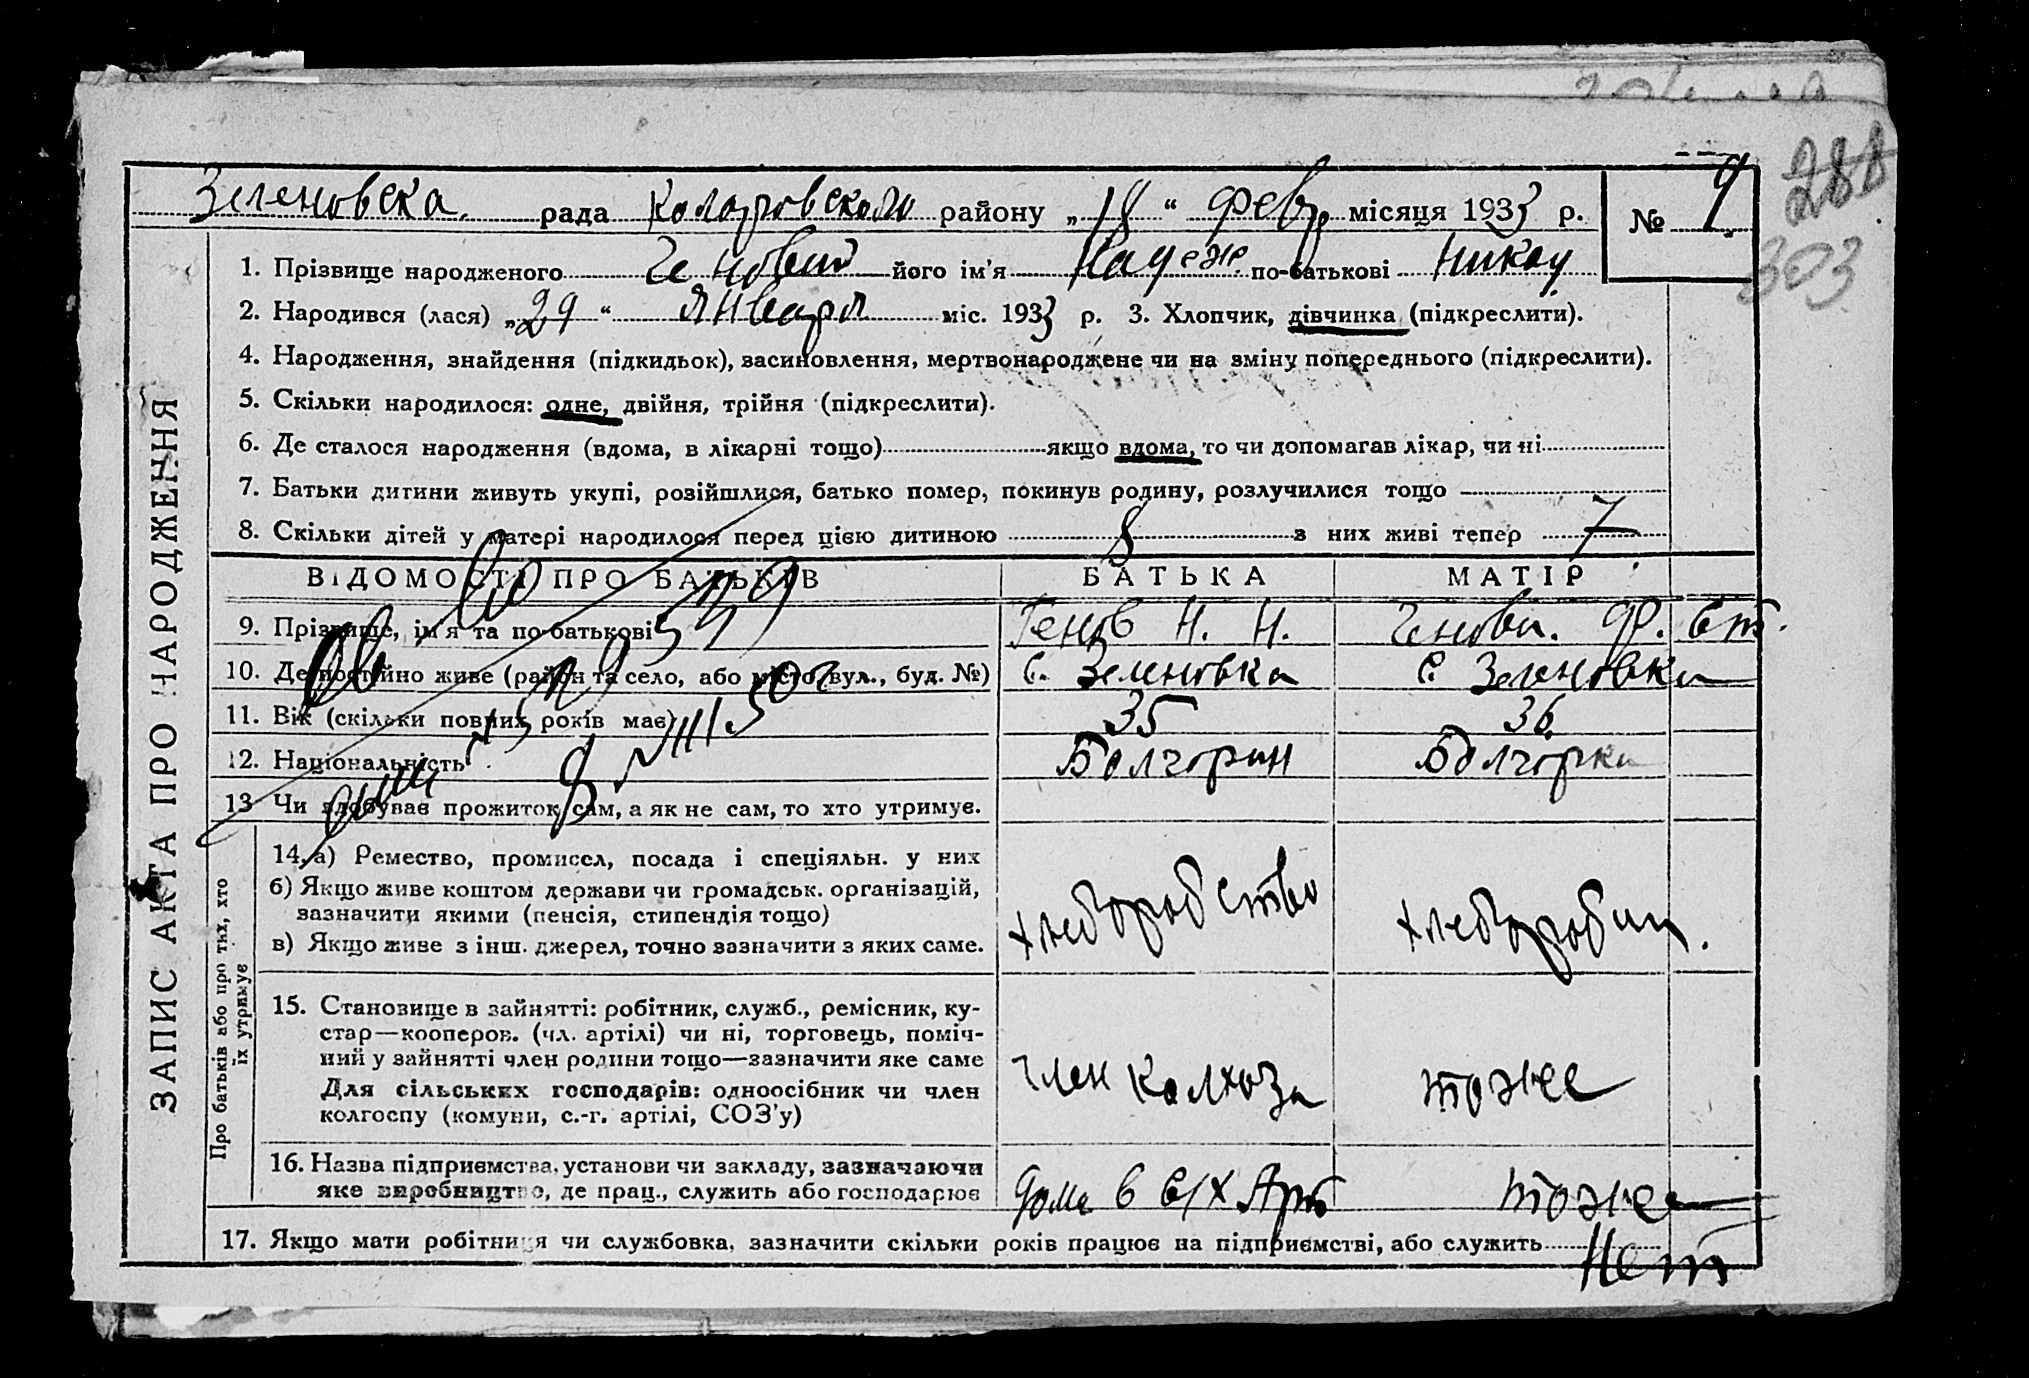 288
303
Зеленовска рада Коларовского району „18“ Февр місяця 1933 р. № 9
ЗАПИС АКТА ПРО НАРОДЖЕННЯ
1. Прізвище народженого його ім'я Надеж по-батькові Никол
2. Народився (лася) „29“ января міс. 1933 р. 3. Хлопчик, дівчинка (підкреслити).
4. Народження, знайдення (підкидьок), засиновлення, мертвонароджене чи на зміну попереднього (підкреслити).
5. Скільки народилося: одне, двійня, трійня (підкреслити).
6. Де сталося народження (вдома, в лікарні тощо) якщо вдома, то чи допомагав лікар, чи ні
7. Батьки дитини живуть укупі, розійшлися, батько помер, покинув родину, розлучилися тощо
8. Скільки дітей у матері народилося перед цією дитиною 8 з них живі тепер 7
ВІДОМОСТІ ПРО БАТЬКІВ БАТЬКА МАТІР
9. Прізвище, ім'я та по-батькові Генов Н. Н. Генова. Ф. Ст.
10. Де постійно живе (район та село, або місто, вул., буд. №) с. Зеленовка с. Зеленовка
11. Вік (скільки повних років має) 35 36
12. Національність Болгорин Болгорка
13 Чи здобуває прожиток сам, а як не сам, то хто утримує.
Про батьків або про тих, хто їх утримує
14. а) Ремество, промисел, посада і спеціяльн. у них
б) Якщо живе коштом держави чи громадськ. організацій,
зазначити якими (пенсія, стипендія тощо)
в) Якщо живе з інш. джерел, точно зазначити з яких саме.
хлеборобство хлебороби
15. Становище в зайнятті: робітник, служб., ремісник, ку-
стар—кооперов. (чл. артілі) чи ні, торговець, поміч-
ний у зайнятті член родини тощо—зазначити яке саме
Для сільських господарів: одноосібник чи член
колгоспу (комуни, с.-г. артілі, СОЗ'у)
член колхоза тоже
16. Назва підприємства, установи чи закладу, зазначаючи
яке виробництво, де прац., служить або господарює
дома в с/х Арт тоже
17. Якщо мати робітниця чи службовка, зазначити скільки років працює на підприємстві, або служить Нет